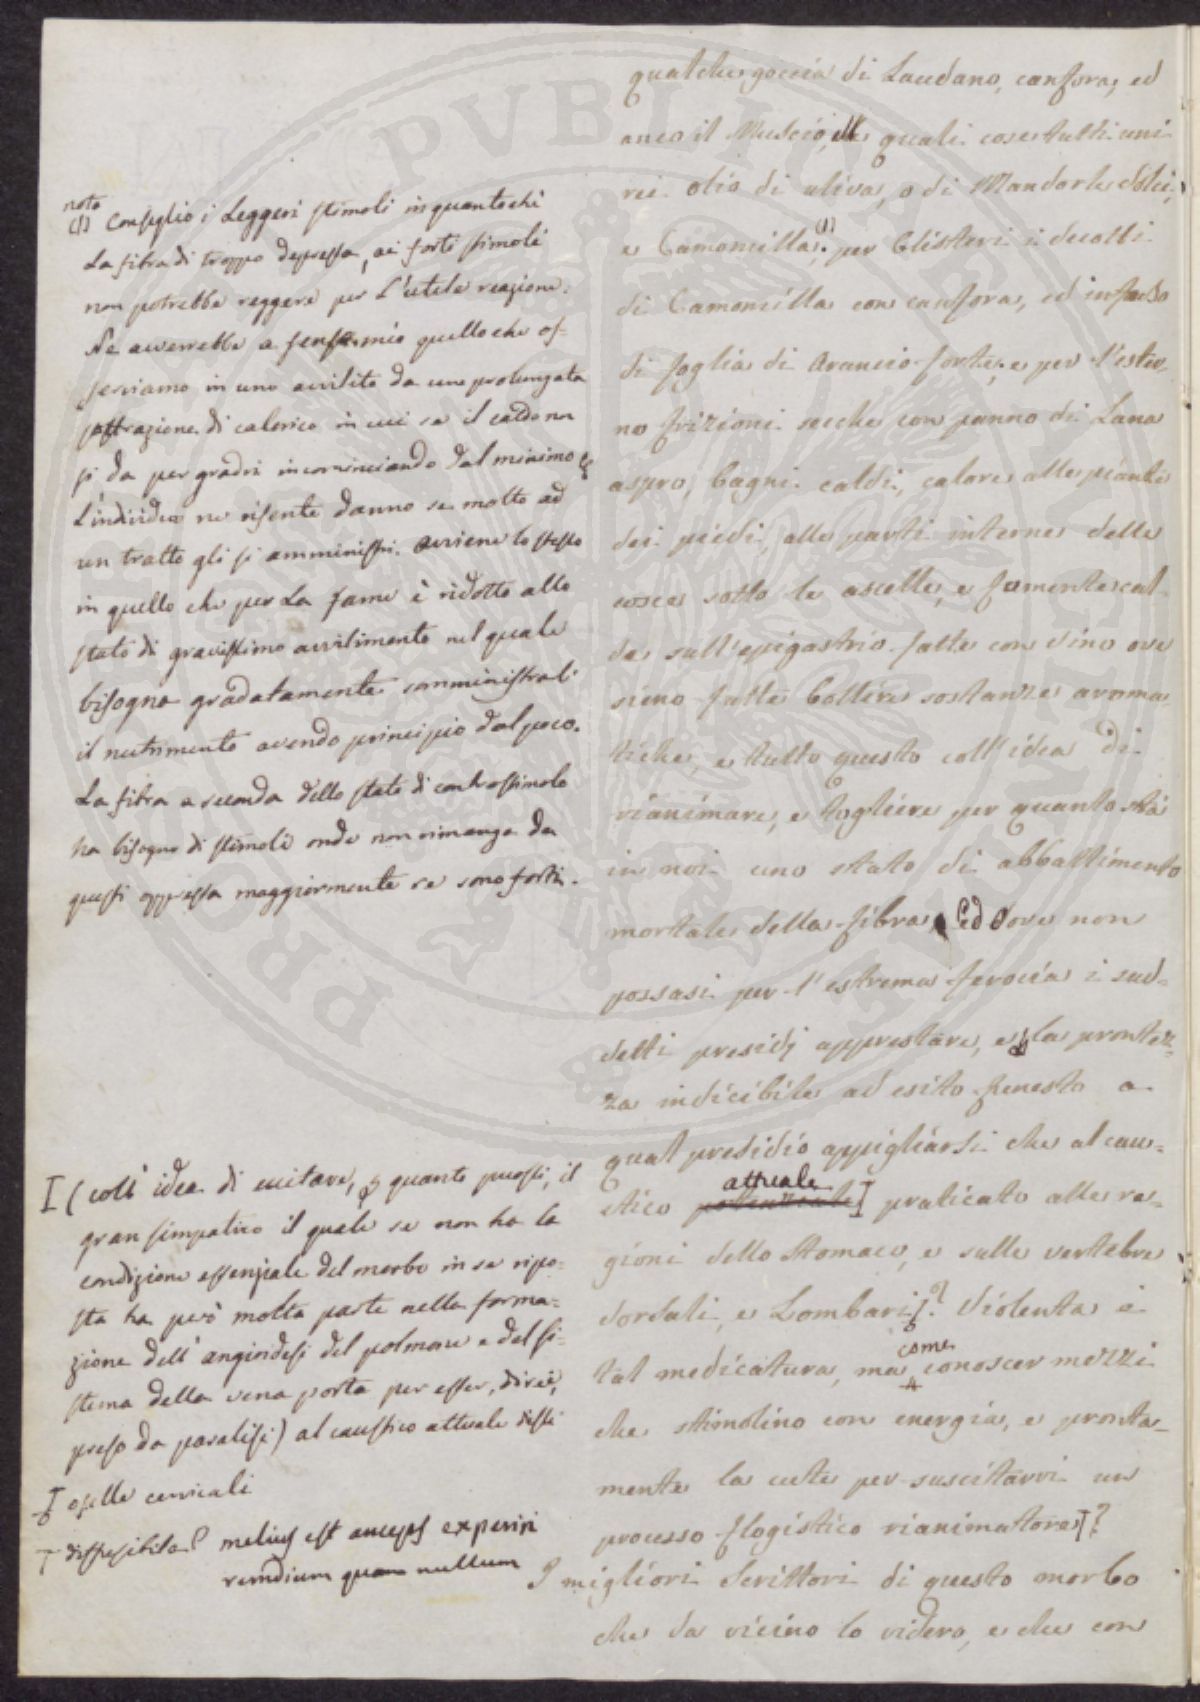 qualche goccia di Laudano, canfora, ed
anco il Muschio, le quali cose tutti uni-
rei olio di uliva, o di Mandorle dolci,
e Camomilla (1); per Clisteri i decotti
di Camomilla con canfora, ed infuso
di foglia di Arancio forte; e per l'ester-
no frizioni secche con panno di Lana
aspro, bagni caldi, calore alle piante
dei piedi, alle parti interne delle
cosce sotto le ascelle, e fomente cal-
de sull'epigastrio fatte con vino ove
sieno fatte bollire sostanze aroma-
tiche, e tutto questo coll'idea di
rianimare, e togliere per quanto stà
in noi uno stato di abbattimento
mortale della fibra. Ed dove non
possasi per l'estrema ferocia i sud-
detti presidj apprestare, e la prontez-
za indicibile ad esito funesto a
qual presidio appigliarsi che al cau-
stico potenziale attuale I praticato alle re-
gioni dello Stomaco, e sulle vertebre
dorsali, e Lombari I? Violenta è
tal medicatura, ma come conoscer mezzi
che stimolino con energia, e pronta-
mente la cute per suscitarvi un
processo flogistico rianimatore I?
I migliori Scrittori di questo morbo
che da vicino lo videro, e che con
nota
(1) Consiglio i Leggeri stimoli inquantochè
La fibra di troppo depressa, ai forti stimoli
non potrebbe reggere per L'utile reazione.
Ne avverrebbe a senso mio quello che os-
serviamo in uno avvilito da una prolungata
sottrazione di calorico in cui se il caldo non
si da per gradi incominciando dal minimo
L'individuo ne risente danno se molto ad
un tratto gli si amministri. Avviene lo stesso
in quello che per La fame è ridotto allo
stato di gravissimo avvilimento nel quale
bisogna gradatamente somministrali
il nutrimento avendo principio dal poco.
La fibra a seconda dello stato di controstimolo
ha bisogno di stimoli onde non rimanga da
questi oppressa maggiormente se sono forti.
I (coll' idea di eccitare, per quanto puossi, il
gran simpatico il quale se non ha la
condizione essenziale del morbo in se ripo-
sta ha però molta parte nella forma-
zione dell' angioidesi del polmone e del si-
stema della vena porta per esser, direi,
preso da paralisi) al caustico attuale dissi
I e sulle cervicali
I diffusibile? melius est anceps experiri
remedium quam nullum